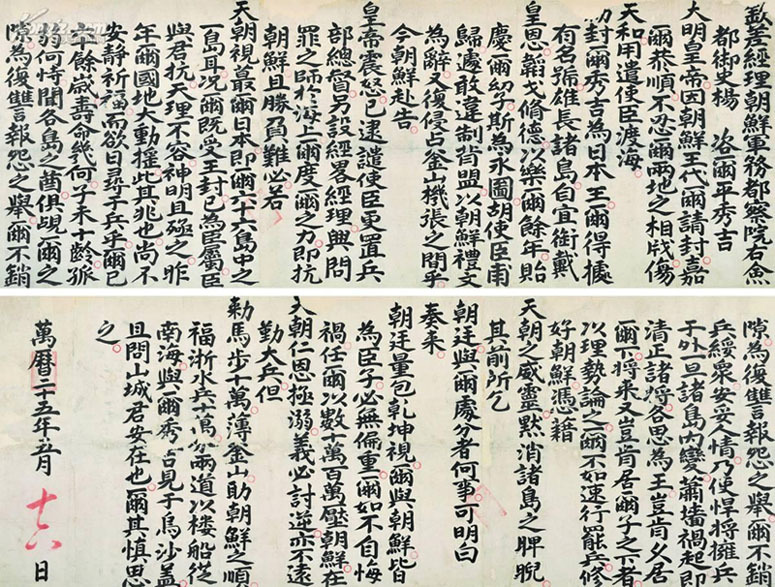 欽差經理朝鮮軍務都察院右僉
都御史楊 咨爾平秀吉
大明皇帝因朝鮮王代爾請封嘉
爾恭順不忍爾兩地之相戕傷
天和用遣使臣渡海
勑封爾秀吉為日本王爾得據
有名號雄長諸島自宜銜戴
皇恩韜戈脩德以樂爾餘年貽
慶爾幼子斯為永圖胡使臣甫
歸遽敢違制背盟以朝鮮禮文
為辭又復侵占釜山機張之間乎
今朝鮮赴告
皇帝震怒已逮譴使臣更置兵
部總督另設經畧經理興問
罪之師於海上爾度爾之力即抗
朝鮮且勝負難必若
天朝視最爾日本即爾六十六島中之
一島耳況爾既受王封已為臣屬臣
與君抗天理不容神明且殛之昨
年爾國地大動摧此其兆也尚不
安靜祈福而欲日尋于兵乎爾已
六十餘歲壽命幾何子未十齡孤
弱何恃聞各島之酋俱覘爾之
隙為復讐報怨之舉爾不銷
隙為復讐報怨之舉爾不銷
兵綏衆安妥人情乃使悍將擁兵
于外一旦諸島內變蕭墻禍起
清正諸將各思為王豈肯久居
爾下將來又豈肯居爾子之下者
以理勢論之爾不如速行罷兵脩
好朝鮮憑藉
天朝之威靈默消諸島之睥睨
其前所乞
朝廷與爾處分者何事可明白
奏來
朝廷量包乾坤視爾與朝鮮皆
為臣子必無偏重爾如不自悔
禍任爾以數十萬百萬壓朝鮮在
天朝仁恩極溺義必討逆亦不遠
勤大兵但
勑馬步十萬薄釜山助朝鮮之順
福浙水兵十萬分兩道以樓船從
南海與爾秀吉見于烏沙盖
且問山城君安在也爾其慎思
之
萬曆二十五年五月 日